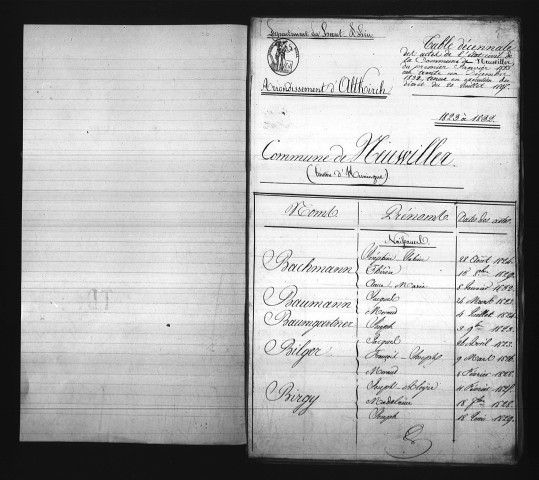 Département du Haut Rhin
Arrondissement d'Altkirch
Table décennale
des actes de l'état civil de
la Commune de Neuwiller
du premier Janvier 1823
au trente un Décembre
1832, tenue en exécution du
décret du 20 Juillet 1807.
1823 à 1832.
Commune de Neuwiller
(Canton d'Huningue)
Noms Prénoms Dates des actes
Naissances
Bachmann Joséphine 28 Août 1824.
Thérèse 16 8bre 1829.
Anne Marie 8 Janvier 1832.
Baumann Jacques 24 Mars 1823.
Morand 4 Juillet 1824.
Baumgartner Joseph 3 9bre 1828.
Bilger Jacques 26 Avril 1823.
François Joseph 9 Mars 1826.
Morand 1 Février 1828.
Birgy Joseph Aloyse 11 Février 1825.
Madelaine 18 7bre 1828.
Joseph 18 1829.